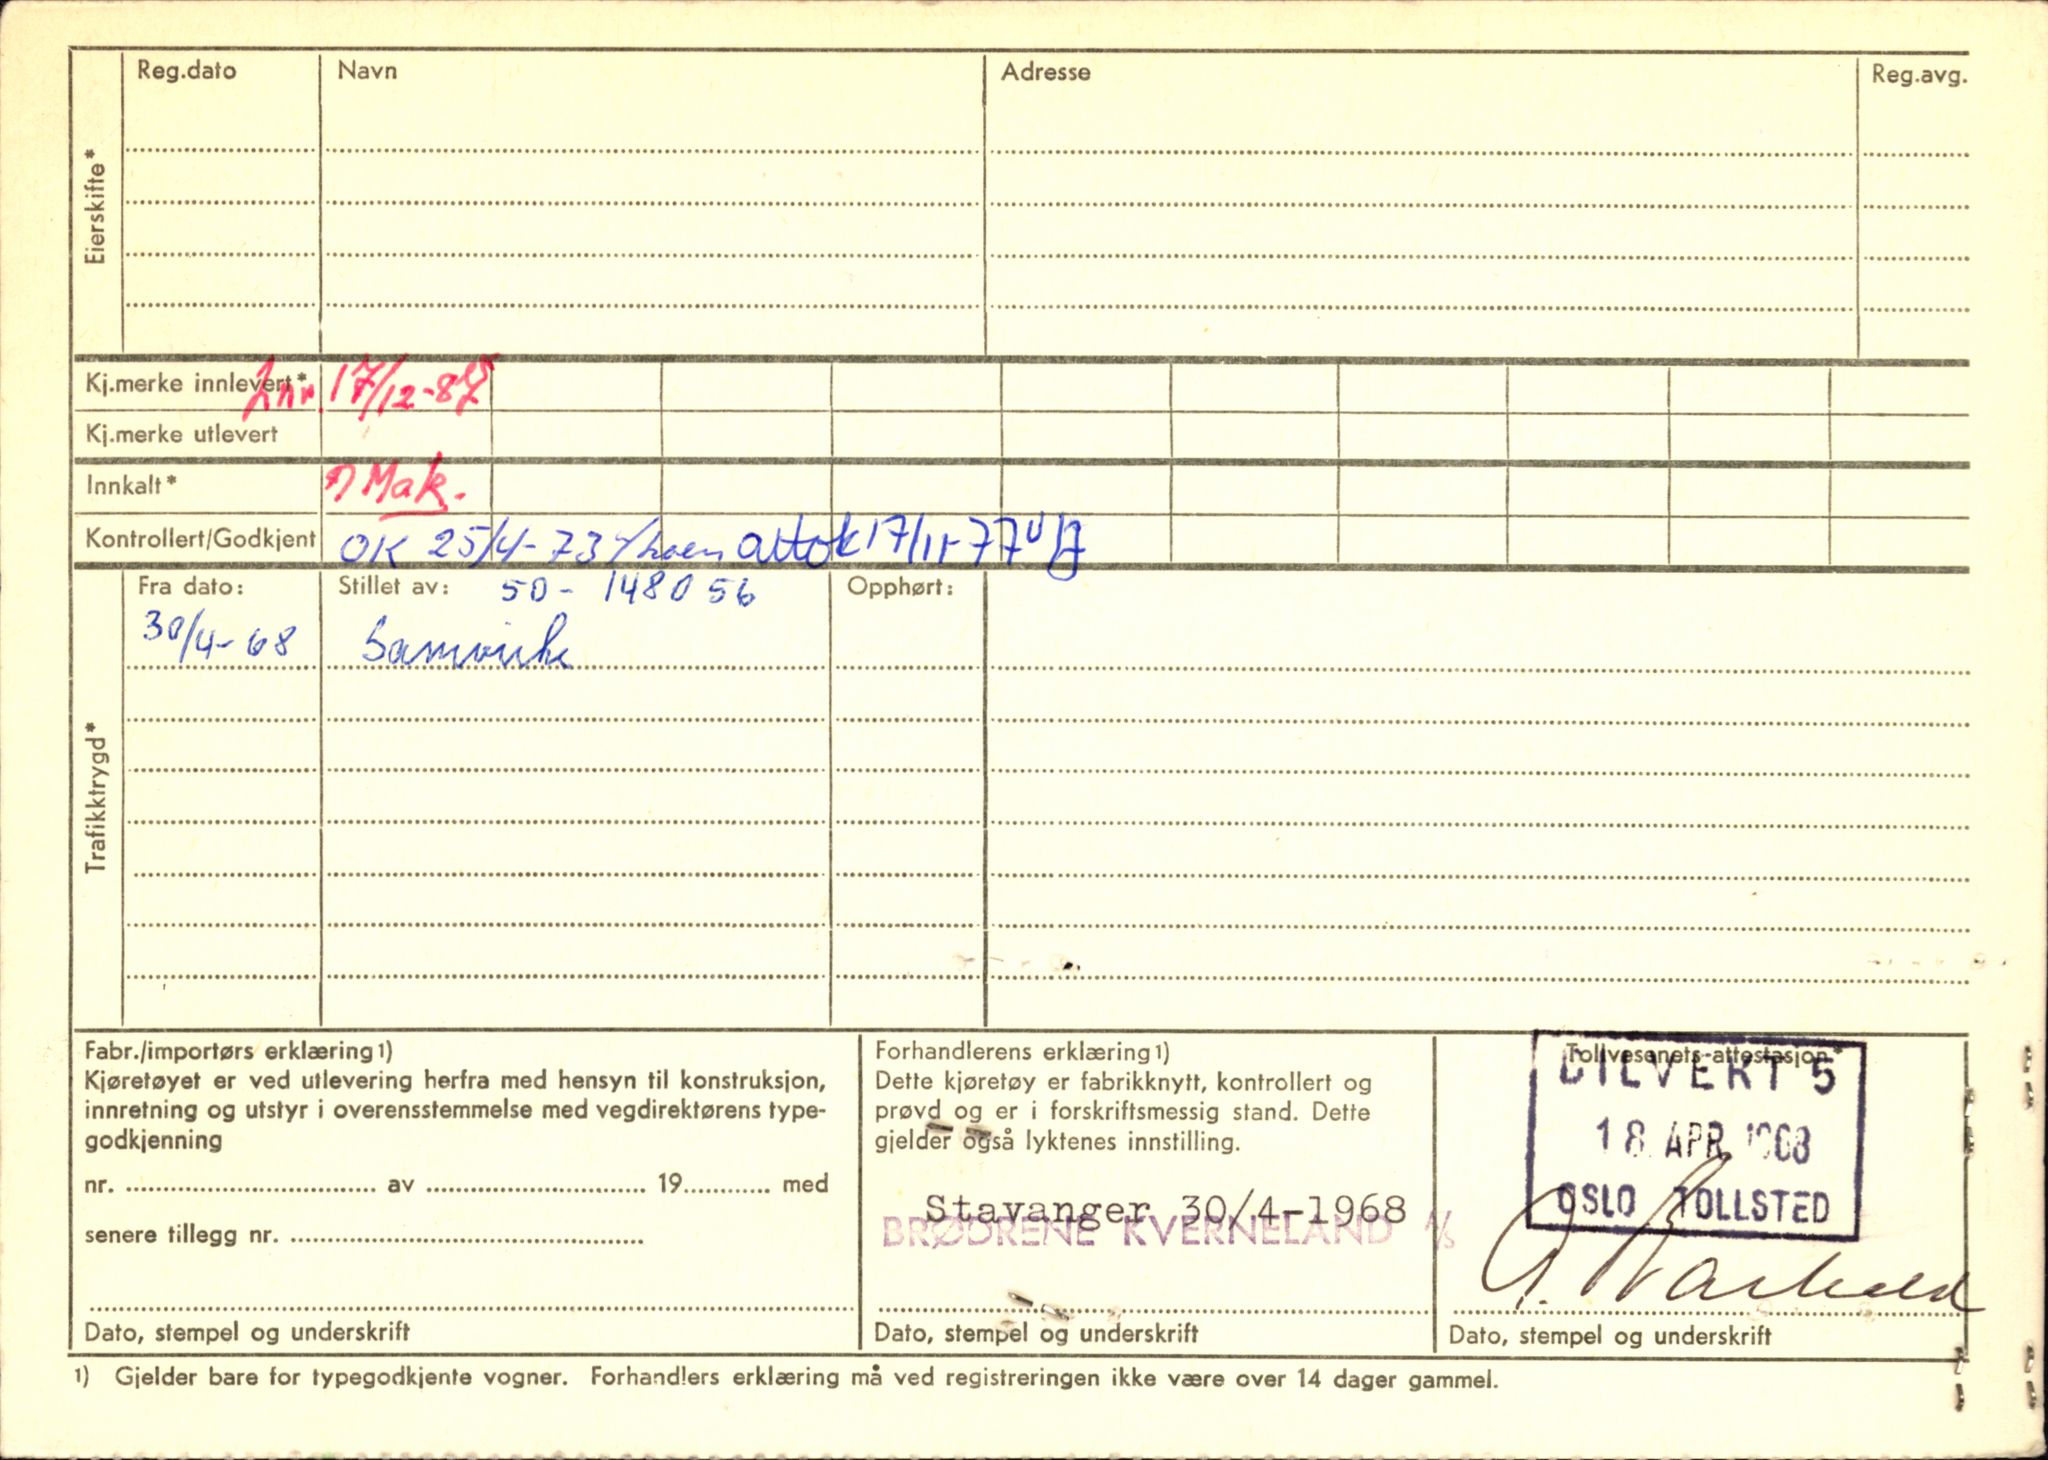 Reg.dato Navn Adresse Reg.avg.
Eierskifte*
Kj.merke innlevert* 17/12-85
Kj.merke utlevert
Innkalt* Mak.
Kontrollert/Godkjent OK 25/4-73 attok 17/11-77
Fra dato: Stillet av: 50-148056 Opphørt:
30/4-68 Samvirke
Trafikktrygd*
Fabr./importørs erklæring 1)
Kjøretøyet er ved utlevering herfra med hensyn til konstruksjon,
innretning og utstyr i overensstemmelse med vegdirektørens type-
godkjenning
nr. av 19 med
senere tillegg nr.
Dato, stempel og underskrift
Forhandlerens erklæring 1)
Dette kjøretøy er fabrikknytt, kontrollert og
prøvd og er i forskriftsmessig stand. Dette
gjelder også lyktenes innstilling.
Stavanger 30/4-1968
BRØDRENE KVERNELAND A/S
Dato, stempel og underskrift
Tollvesenets attestasjon*
BILVERT 5
18 APR 1968
OSLO TOLLSTED
Dato, stempel og underskrift
1) Gjelder bare for typegodkjente vogner. Forhandlers erklæring må ved registreringen ikke være over 14 dager gammel.